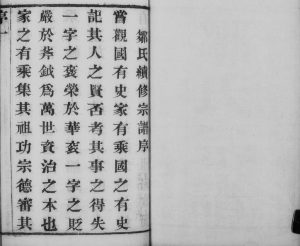 鄒氏續修宗譜序
嘗觀國有史家有乘國之有史
記其人之賢否考其事之得失
一字之褒榮於華衮一字之貶
嚴於斧鉞爲萬世資治之本也
家之有乘集其祖功宗德審其
序